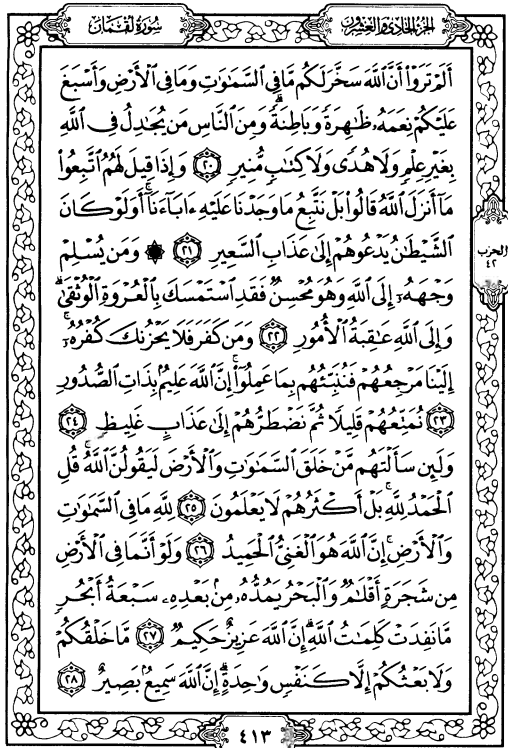 سورة لقمان
الجزء الحادي والعشرون
أَلَمْ تَرَوْا۟ أَنَّ ٱللَّهَ سَخَّرَ لَكُم مَّا فِى ٱلسَّمَٰوَٰتِ وَمَا فِى ٱلْأَرْضِ وَأَسْبَغَ
عَلَيْكُمْ نِعَمَهُۥ ظَٰهِرَةً وَبَاطِنَةً ۗ وَمِنَ ٱلنَّاسِ مَن يُجَٰدِلُ فِى ٱللَّهِ
بِغَيْرِ عِلْمٍ وَلَا هُدًى وَلَا كِتَٰبٍ مُّنِيرٍ ٢٠ وَإِذَا قِيلَ لَهُمُ ٱتَّبِعُوا۟
مَآ أَنزَلَ ٱللَّهُ قَالُوا۟ بَلْ نَتَّبِعُ مَا وَجَدْنَا عَلَيْهِ ءَابَآءَنَآ ۚ أَوَلَوْ كَانَ
ٱلشَّيْطَٰنُ يَدْعُوهُمْ إِلَىٰ عَذَابِ ٱلسَّعِيرِ ٢١ ۞ وَمَن يُسْلِمْ
وَجْهَهُۥٓ إِلَى ٱللَّهِ وَهُوَ مُحْسِنٌ فَقَدِ ٱسْتَمْسَكَ بِٱلْعُرْوَةِ ٱلْوُثْقَىٰ ۗ
وَإِلَى ٱللَّهِ عَٰقِبَةُ ٱلْأُمُورِ ٢٢ وَمَن كَفَرَ فَلَا يَحْزُنكَ كُفْرُهُۥٓ ۚ
إِلَيْنَا مَرْجِعُهُمْ فَنُنَبِّئُهُم بِمَا عَمِلُوٓا۟ ۚ إِنَّ ٱللَّهَ عَلِيمٌۢ بِذَاتِ ٱلصُّدُورِ
٢٣ نُمَتِّعُهُمْ قَلِيلًا ثُمَّ نَضْطَرُّهُمْ إِلَىٰ عَذَابٍ غَلِيظٍ ٢٤
وَلَئِن سَأَلْتَهُم مَّنْ خَلَقَ ٱلسَّمَٰوَٰتِ وَٱلْأَرْضَ لَيَقُولُنَّ ٱللَّهُ ۚ قُلِ
ٱلْحَمْدُ لِلَّهِ ۚ بَلْ أَكْثَرُهُمْ لَا يَعْلَمُونَ ٢٥ لِلَّهِ مَا فِى ٱلسَّمَٰوَٰتِ
وَٱلْأَرْضِ ۚ إِنَّ ٱللَّهَ هُوَ ٱلْغَنِىُّ ٱلْحَمِيدُ ٢٦ وَلَوْ أَنَّمَا فِى ٱلْأَرْضِ
مِن شَجَرَةٍ أَقْلَٰمٌ وَٱلْبَحْرُ يَمُدُّهُۥ مِنۢ بَعْدِهِۦ سَبْعَةُ أَبْحُرٍ
مَّا نَفِدَتْ كَلِمَٰتُ ٱللَّهِ ۗ إِنَّ ٱللَّهَ عَزِيزٌ حَكِيمٌ ٢٧ مَّا خَلْقُكُمْ
وَلَا بَعْثُكُمْ إِلَّا كَنَفْسٍ وَٰحِدَةٍ ۗ إِنَّ ٱللَّهَ سَمِيعٌۢ بَصِيرٌ ٢٨
الحزب
٤٢
٤١٣